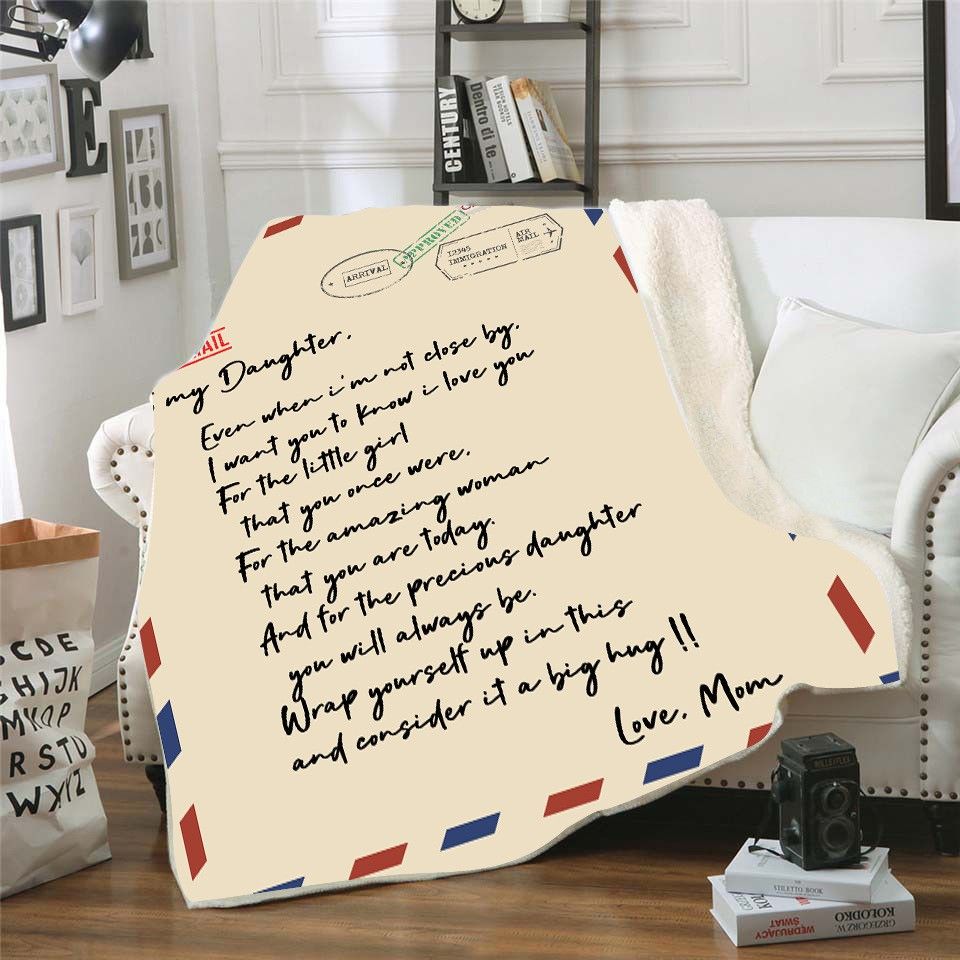 E
CENTURY
Dentro di te
DESIGN HOTELS
YEAR BOOK
APPROVED
ARRIVAL
12345
IMMIGRATION
AIR
MAIL
AIL
my Daughter,
Even when i'm not close by,
I want you to know i love you
For the little girl
that you once were,
For the amazing woman
that you are today.
And for the precious daughter
you will always be.
Wrap yourself up in this
and consider it a big hug!!
Love, Mom
CDE
GHIJK
MNOP
RSTU
WXYZ
ROLLEIFLEX
STILETTO BOOK
GRZEGORZ W.
KOŁODKO
WĘDRUJĄCY
ŚWIAT